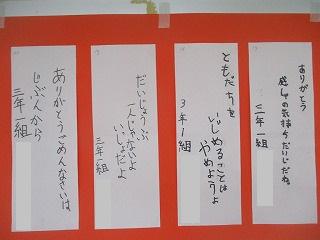 ありがとう
感しゃの気持ちだいじだね。
三年一組
ともだちを
いじめることは
やめようよ
3年1組
だいじょうぶ
一人じゃないよ
いっしょだよ
三年一組
ありがとうごめんなさいは
じぶんから
三年一組